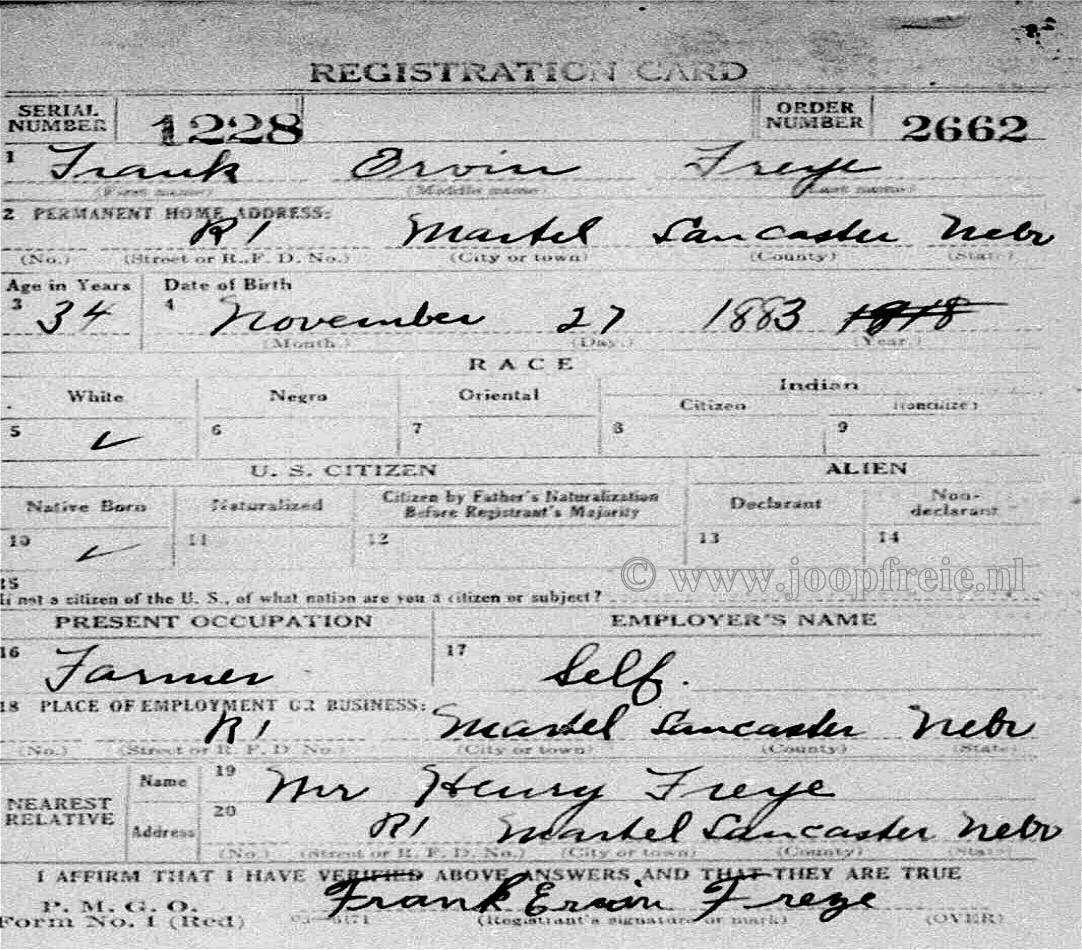 REGISTRATION CARD
SERIAL NUMBER 1228 ORDER NUMBER 2662
1 Frank Ervin Freye
(First name) (Middle name) (Last name)
2 PERMANENT HOME ADDRESS:
R1 Martel Lancaster Nebr
(No.) (Street or R. F. D. No.) (City or town) (County) (State)
Age in Years Date of Birth
3 34 4 November 27 1883 1918
(Month.) (Day.) (Year.)
RACE
White Negro Oriental Indian
Citizen Noncitizen
5 ✓ 6 7 8 9
U. S. CITIZEN ALIEN
Native Born Naturalized Citizen by Father's Naturalization Before Registrant's Majority Declarant Non-declarant
10 ✓ 11 12 13 14
© www.joopfreie.nl
15
If not a citizen of the U. S., of what nation are you a citizen or subject?
PRESENT OCCUPATION EMPLOYER'S NAME
16 Farmer 17 Self.
18 PLACE OF EMPLOYMENT OR BUSINESS:
R1 Martel Lancaster Nebr
(No.) (Street or R. F. D. No.) (City or town) (County) (State)
NEAREST RELATIVE Name 19 Mr Henry Freye
Address 20 R1 Martel Lancaster Nebr
(No.) (Street or R. F. D. No.) (City or town) (County) (State)
I AFFIRM THAT I HAVE VERIFIED ABOVE ANSWERS AND THAT THEY ARE TRUE
P. M. G. O.
Form No. 1 (Red) Frank Ervin Freye
(Registrant's signature or mark) (OVER)